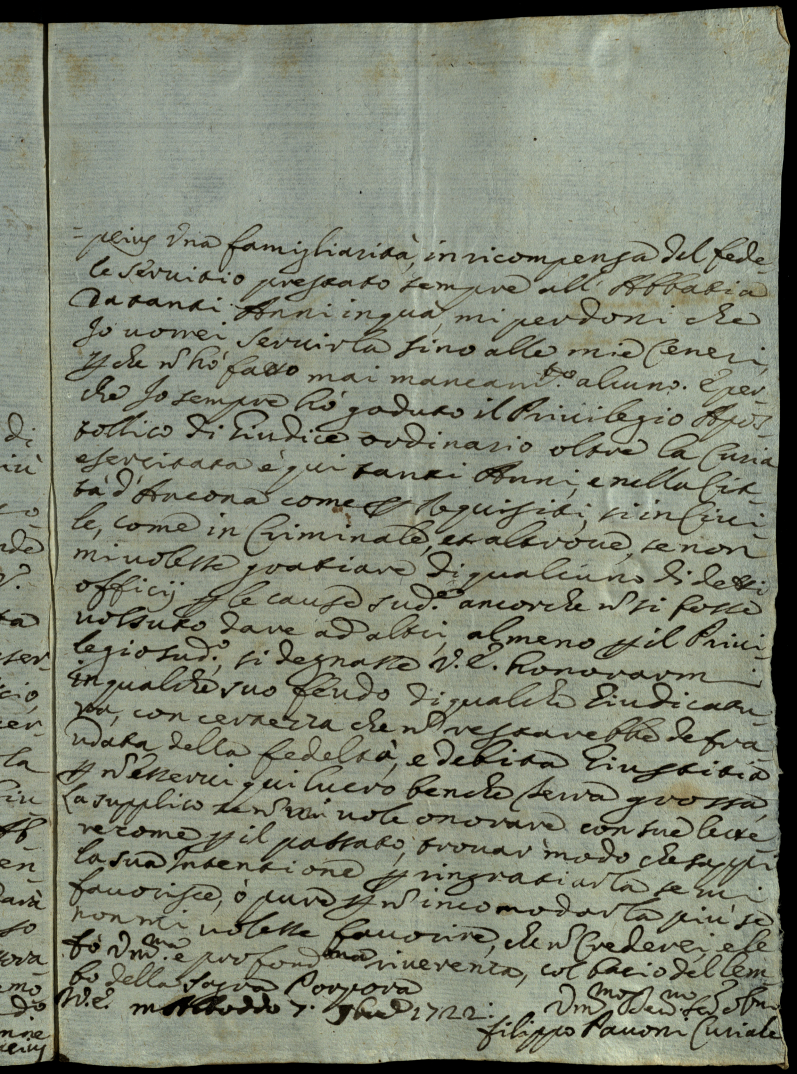 di
iù
nde
V.
ta
ser-
cio
cer-
la
Giu
en-
darà
so
sora
emo
do
= una famigliarità, in ricompensa del fede-
le servitio prestato sempre all' Abbatia
da tanti Anni in quà, mi perdoni che
Io vorrei servirla sino alle mie Ceneri,
p che nō hò fatto mai mancam.to alcuno. E per-
che Io sempre hò goduto il Privilegio Apos-
tollico di Giudice ordinario oltre la Curia
esercitata è qui tanti Anni, e nella Cit-
tà d'Ancona come p requisiti, sì in Civi-
le, come in Criminale, et altrove, se non
mi volesse gratiare di qualcuno di detti
officij p le cause sud.e ancorche nō si fosse
volsuto dare ad altri, almeno p il Privi-
legio sud.o, si degnasse V.E. honorarmi
in qualche suo feudo di qualche Giudicatu-
ra, con certezza che nō restarebbe defra-
udata della fedeltà, e debita Giustitia
p nō esservi qui lucro benche terra grossa,
La supplico se nō mi vole onorare con sue lette-
re come p il passato, trovar modo che sappi
la sua Intentione p ringratiarla se mi
favorisce, ò pure p nō incomodarla più se
non mi volesse favorire, che nō Crederei, e le
fò Um.ma e profond.ma riverenza, col bacio del lem-
bo della Sagra Porpora
D.V.E. Mte Alboddo 7. 9bre 1722.
Um.mo Dev.mo Ser.e Obmo
Filippo Pavoni Curiale